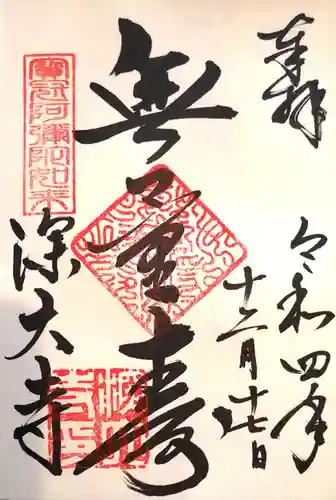 奉拝
令和四年
十二月十七日
無量寿
寶冠阿彌陀如来
深大寺